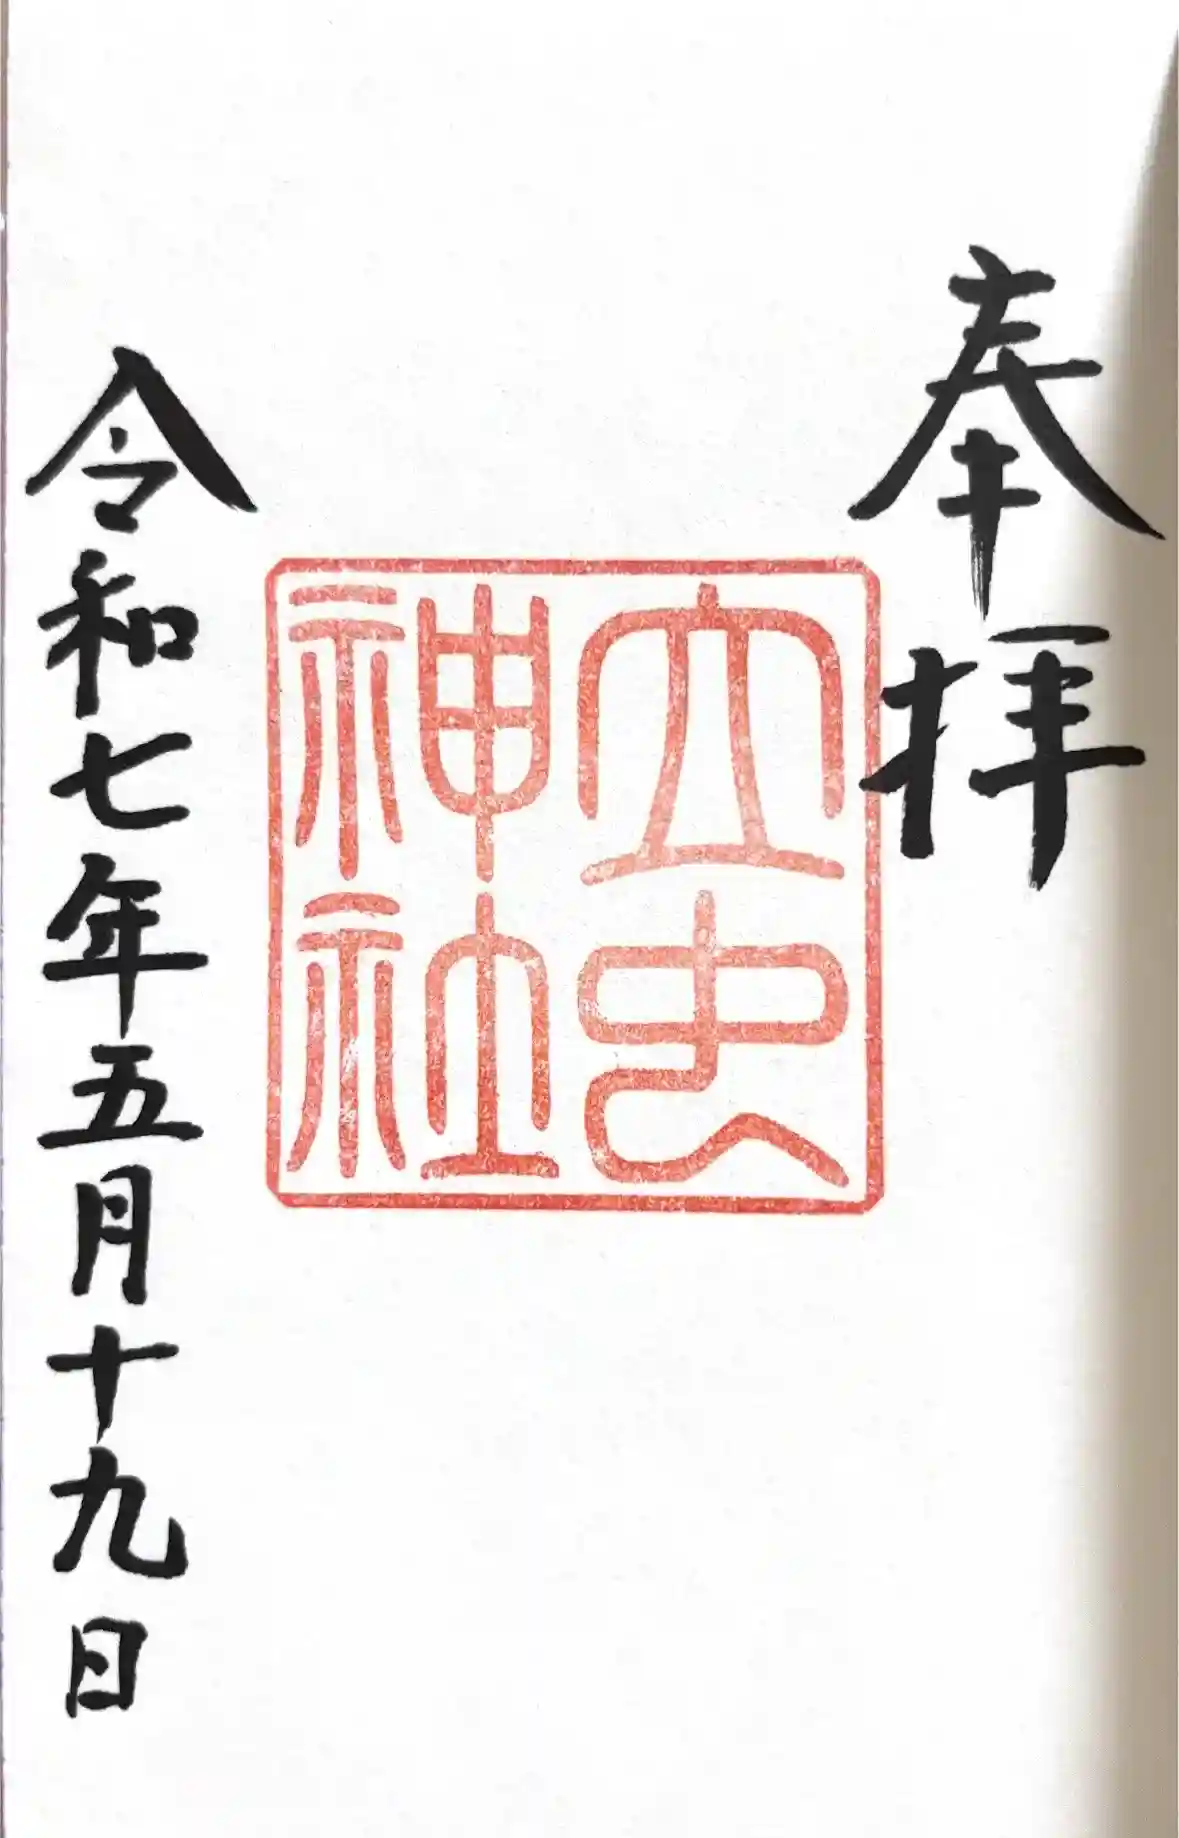 奉拝
立虫
神社
令和七年五月十九日